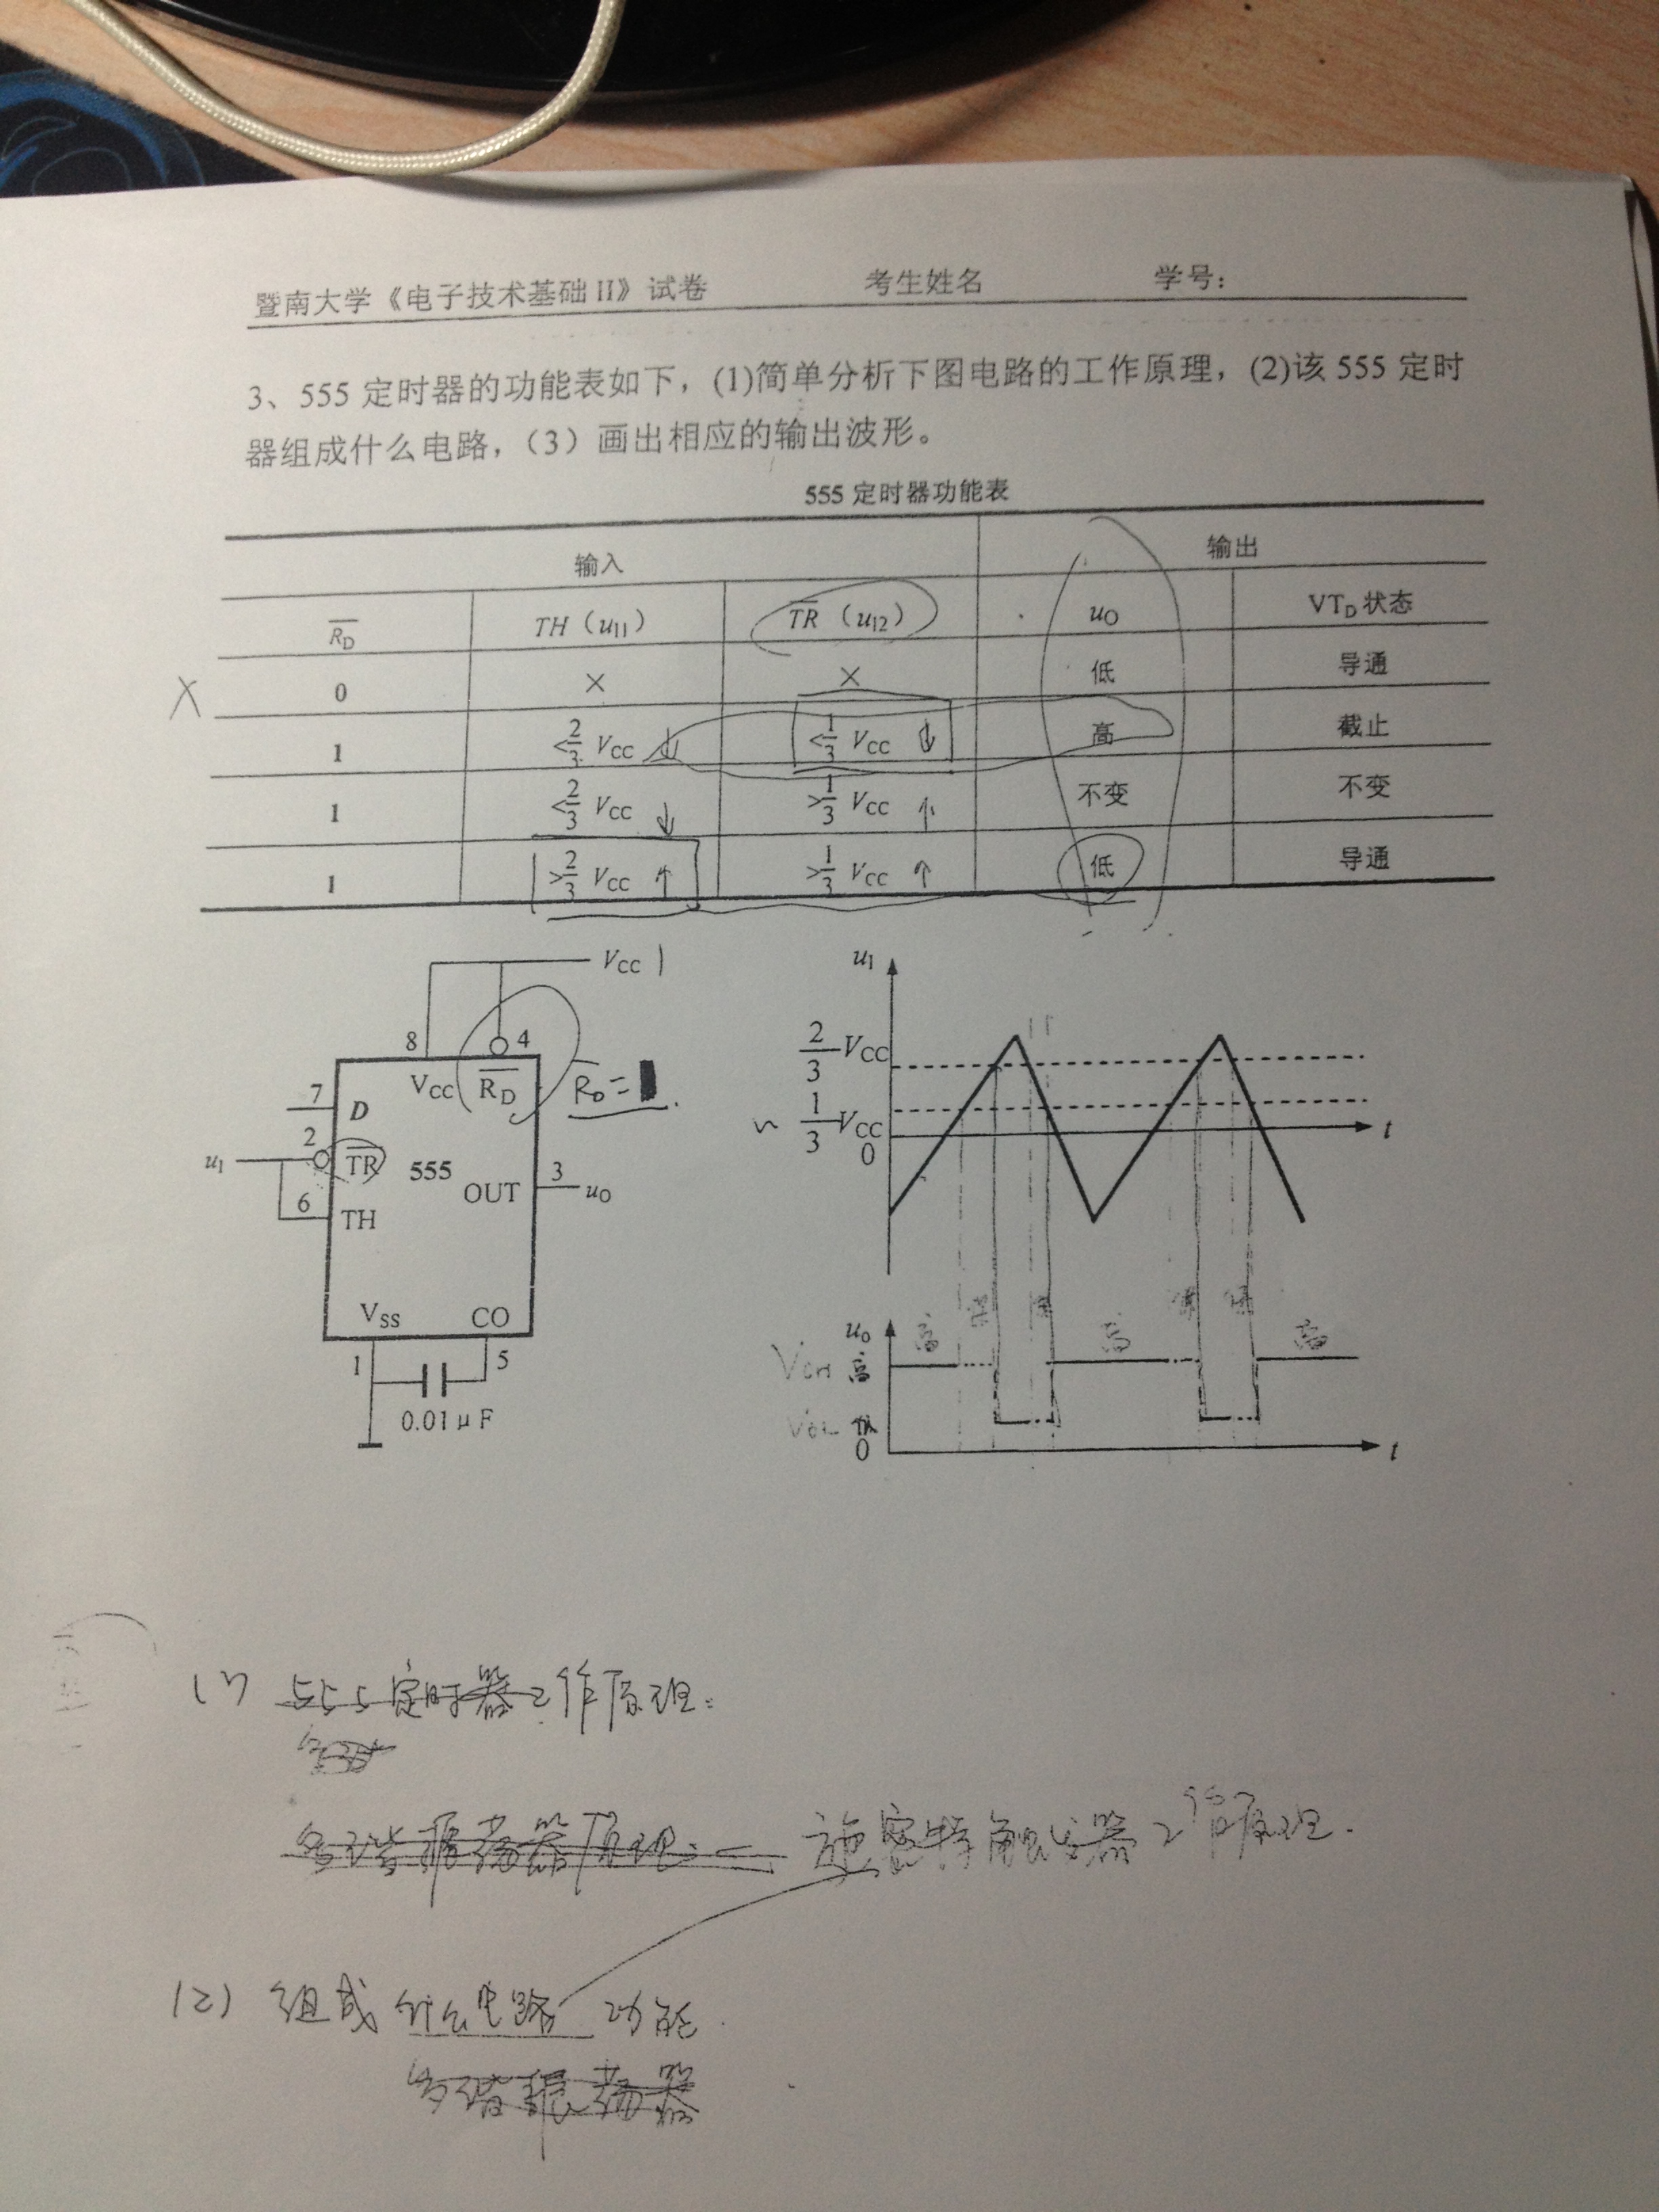 暨南大学《电子技术基础 II》试卷 考生姓名 学号：
3、555 定时器的功能表如下，(1)简单分析下图电路的工作原理，(2)该 555 定时
器组成什么电路，（3）画出相应的输出波形。
555 定时器功能表
输入 输出
R̅D TH（uI1） T̅R̅（uI2） uO VTD 状态
X 0 × × 低 导通
1 <2/3 VCC ↓ <1/3 VCC ↓ 高 截止
1 <2/3 VCC ↓ >1/3 VCC ↑ 不变 不变
1 >2/3 VCC ↑ >1/3 VCC ↑ 低 导通
VCC 1
8 4
VCC R̅D
RD =
7 D
2 T̅R̅
uI
555
6 TH
OUT 3 uO
VSS CO
1 5
0.01 μF
uI
2/3 VCC
1/3 VCC
0 t
uO
高 高 高
VOH 高
VOL
0 t
(1) 555定时器工作原理：
多谐振荡器原理： 施密特触发器工作原理.
(2) 组成 什么电路 功能.
多谐振荡器